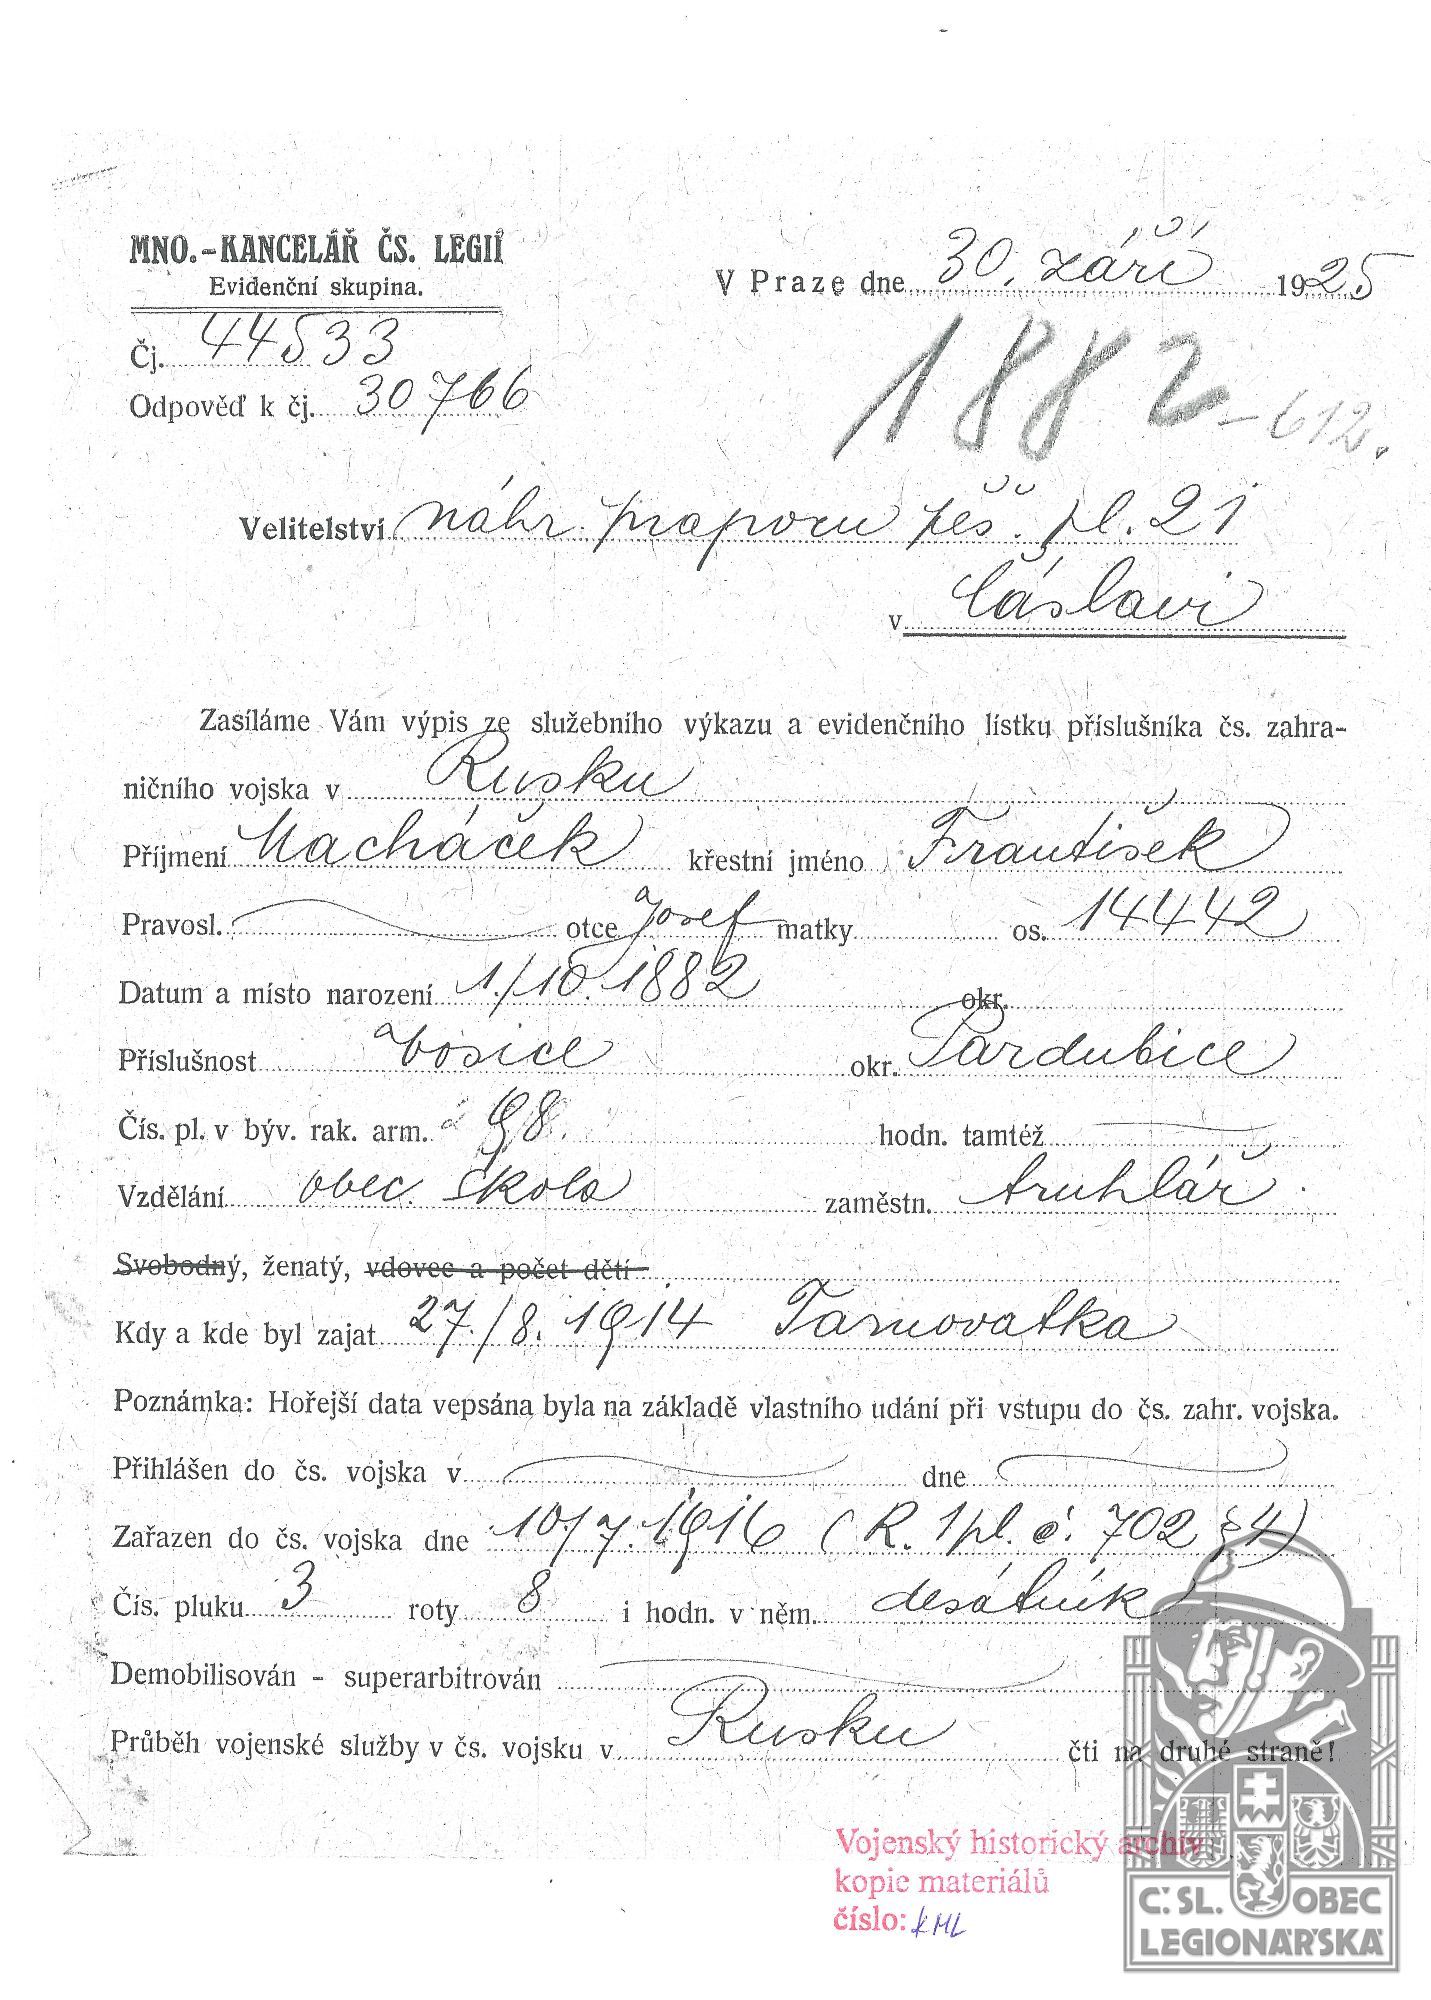 MNO.-KANCELÁŘ ČS. LEGIÍ
Evidenční skupina.
V Praze dne 30. září 1925
Čj. 44533
Odpověď k čj. 30766
1882 - 612.
Velitelství náhr. praporu pěš. pl. 21
v Čáslavi
Zasíláme Vám výpis ze služebního výkazu a evidenčního lístku příslušníka čs. zahra-
ničního vojska v Rusku
Příjmení Macháček křestní jméno František
Pravosl. otce Josef matky os. 14442
Datum a místo narození 1./10. 1882 okr.
Příslušnost Vosice okr. Pardubice
Čís. pl. v býv. rak. arm. 98. hodn. tamtéž
Vzdělání obec. škola zaměstn. truhlář
Svobodný, ženatý, vdovec a počet dětí
Kdy a kde byl zajat 27./8. 1914 Tarnovatka
Poznámka: Hořejší data vepsána byla na základě vlastního udání při vstupu do čs. zahr. vojska.
Přihlášen do čs. vojska v dne
Zařazen do čs. vojska dne 10./7. 1916 (R. 1 pl. č. 702 § 4)
Čís. pluku 3 roty 8 i hodn. v něm. desátník
Demobilisován - superarbitrován
Průběh vojenské služby v čs. vojsku v Rusku čti na druhé straně!
Vojenský historický archiv
kopie materiálů
číslo: KML
Č.SL. OBEC
LEGIONÁŘSKÁ